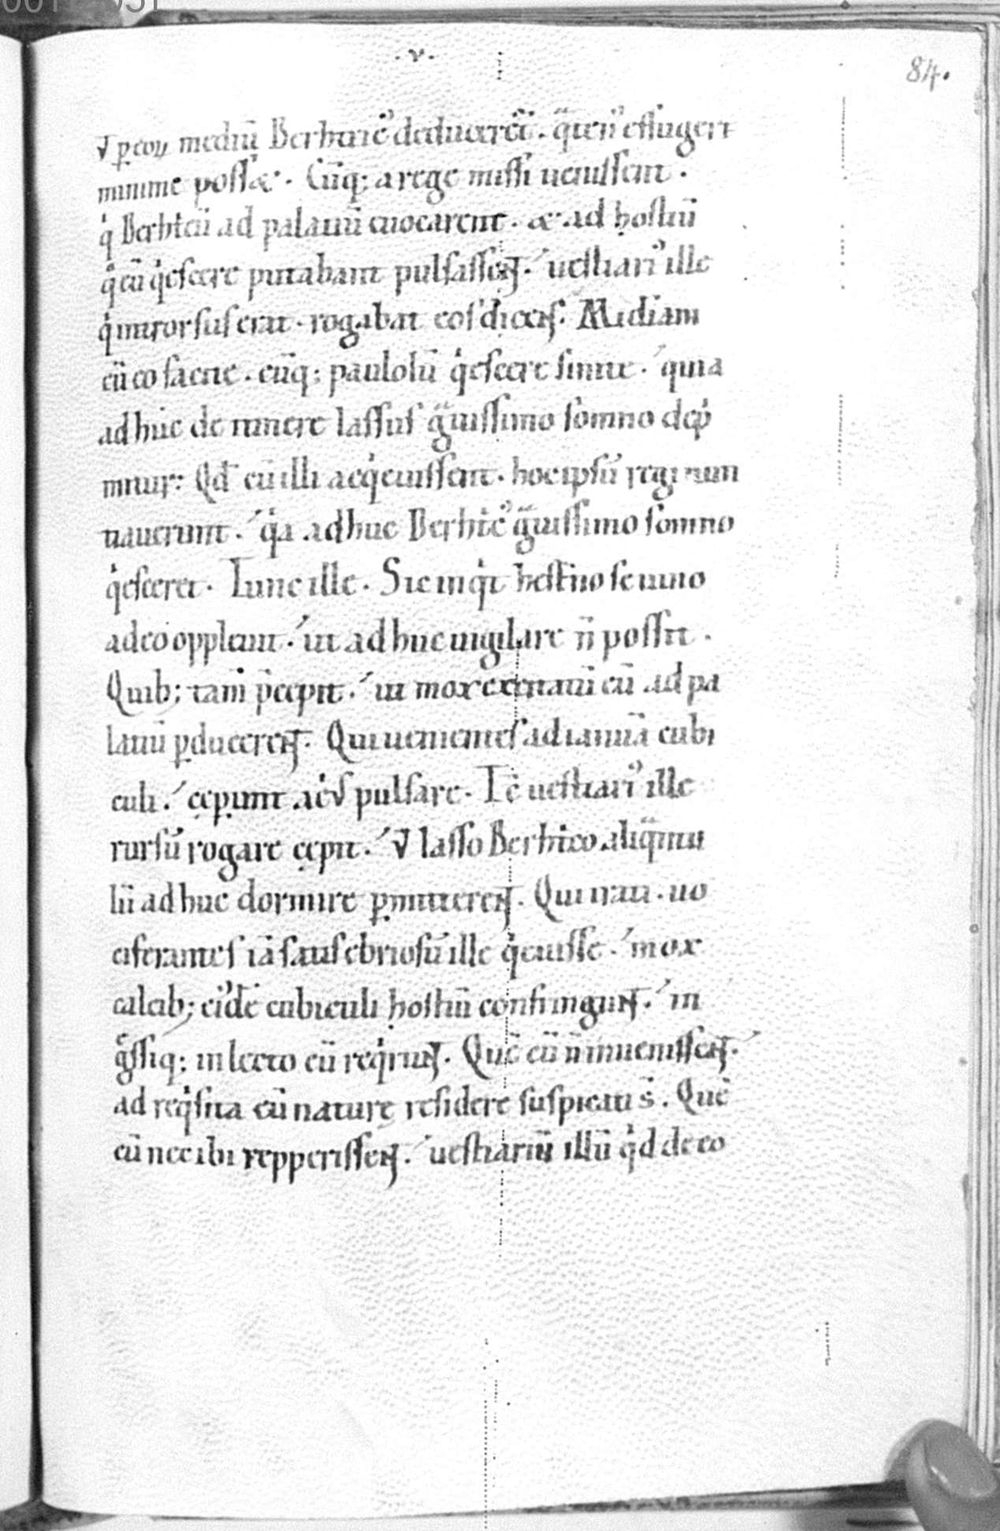 ·v·
84.
ut p eoꝝ mediū Berhtric' deducereť. quatin' effugere
minime posset. Cūq; a rege missi uenissent.
q̇ Berhtcū ad palatiū euocarent. & ad hostiū
q̊ eū q̇escere putabant pulsassent. uestiari' ille
q̇ introrsus erat. rogabat eos dicens. Misdiam
cū eo facite. eūq; paululū q̇escere sinite. quia
adhuc de itinere lassus g̃uissimo somno dep̃
mitur: Qd̄ cū illi acq̇euissent. hoc ipsū regi nun
tiauerunt. q̇a adhuc Berhtc' g̃uissimo somno
q̇esceret. Tunc ille. Sic inq̇t hesťno se uino
adeo oppleuit. ut adhuc uigilare ñ possit.
Quib; tam̄ p̄cepit. ut mox excitatū eū ad pa
latiū ꝑducerent. Qui uenientes ad ianuā cubi
culi. cęperunt acṙ pulsare. Tc̄ uestiari' ille
rursū rogare cępit. ut lasso Berhtco aliq̃ntu
lū adhuc dormire ꝑmitterent. Qui irati. uo
ciferantes iā satis ebriosū ille q̇euisse. mox
calcib; ei'dē cubiculi hostiū confringunt. in
g̊ssiq; in lecto eū req̇runt. Quē cū ñ inuenissent.
ad req̇sita eū naturę residere suspicati s̄. Quē
cū nec ibi repperissent. uestiariū illū q̇d de eo